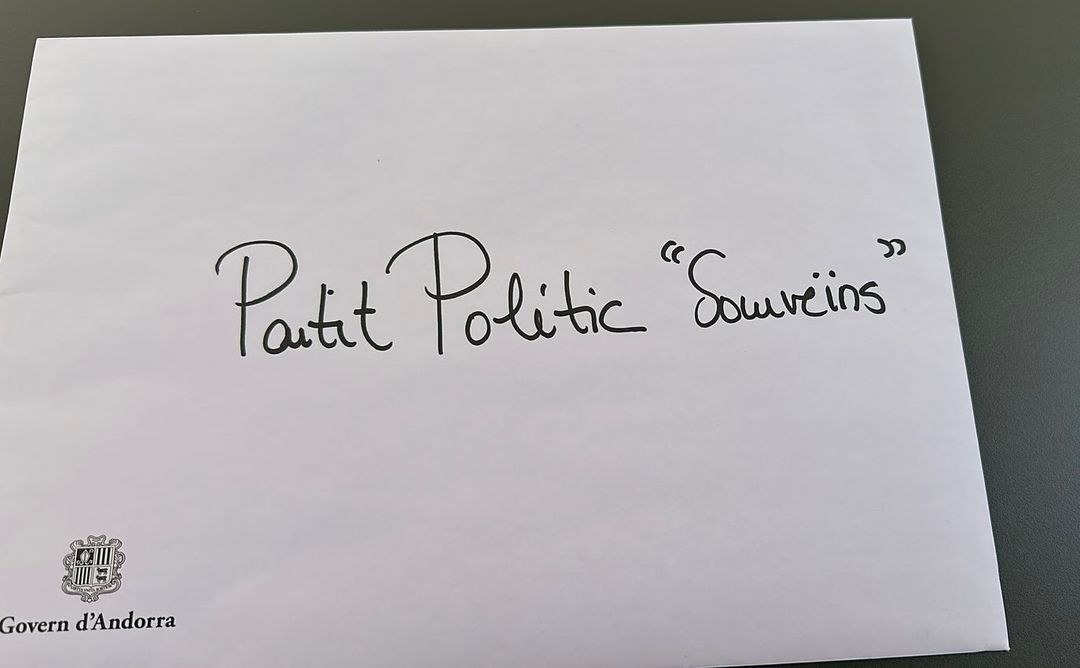 Partit Polític "Somveïns"
Govern d'Andorra